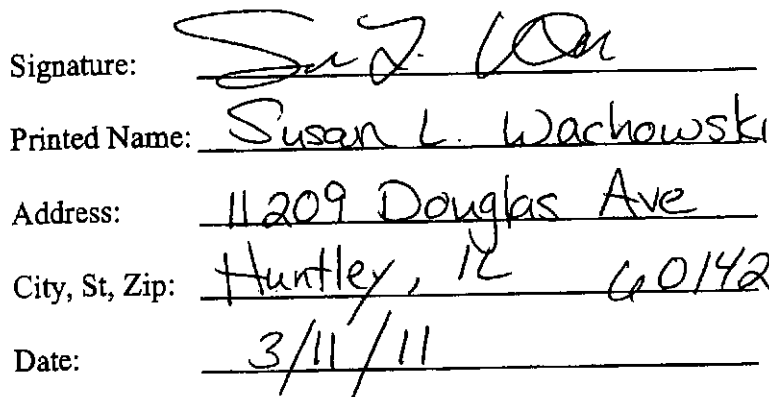 Signature:
Printed Name: Susan L. Wachowski
Address: 11209 Douglas Ave
City, St, Zip: Huntley, IL 60142
Date: 3/11/11